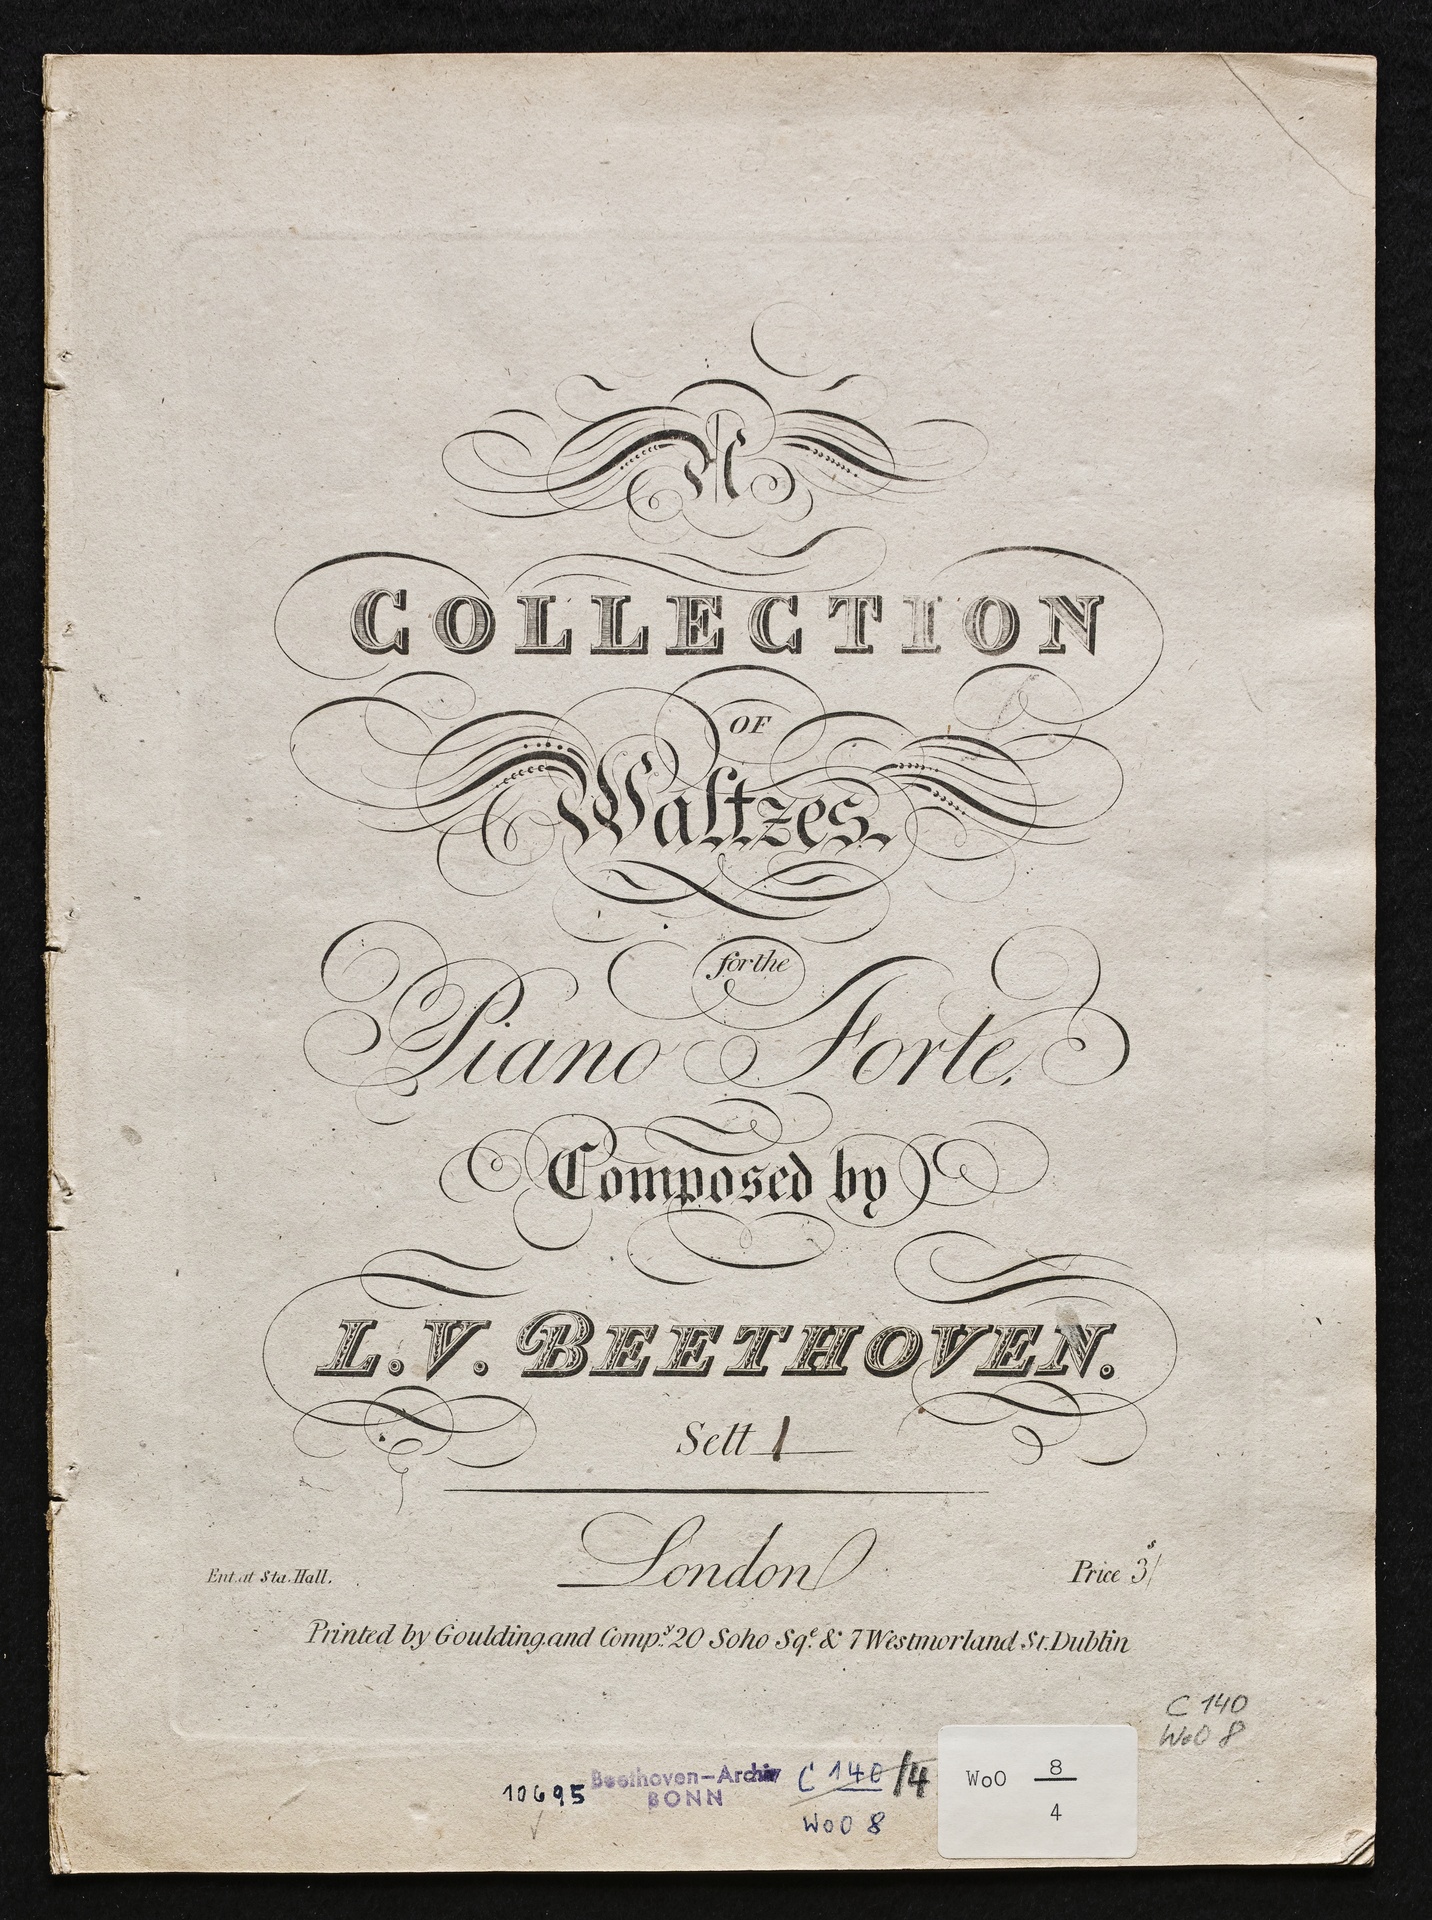 A
COLLECTION
OF
Waltzes.
for the
Piano Forte.
Composed by
L. V. BEETHOVEN.
Sett 1
London
Ent. at Sta. Hall.
Price 3s/
Printed by Goulding and Compy. 20 Soho Sqe. & 7 Westmorland St. Dublin
C 140
WoO 8
10695
Beethoven-Archiv
BONN
C 140/4
WoO 8
WoO 8
4